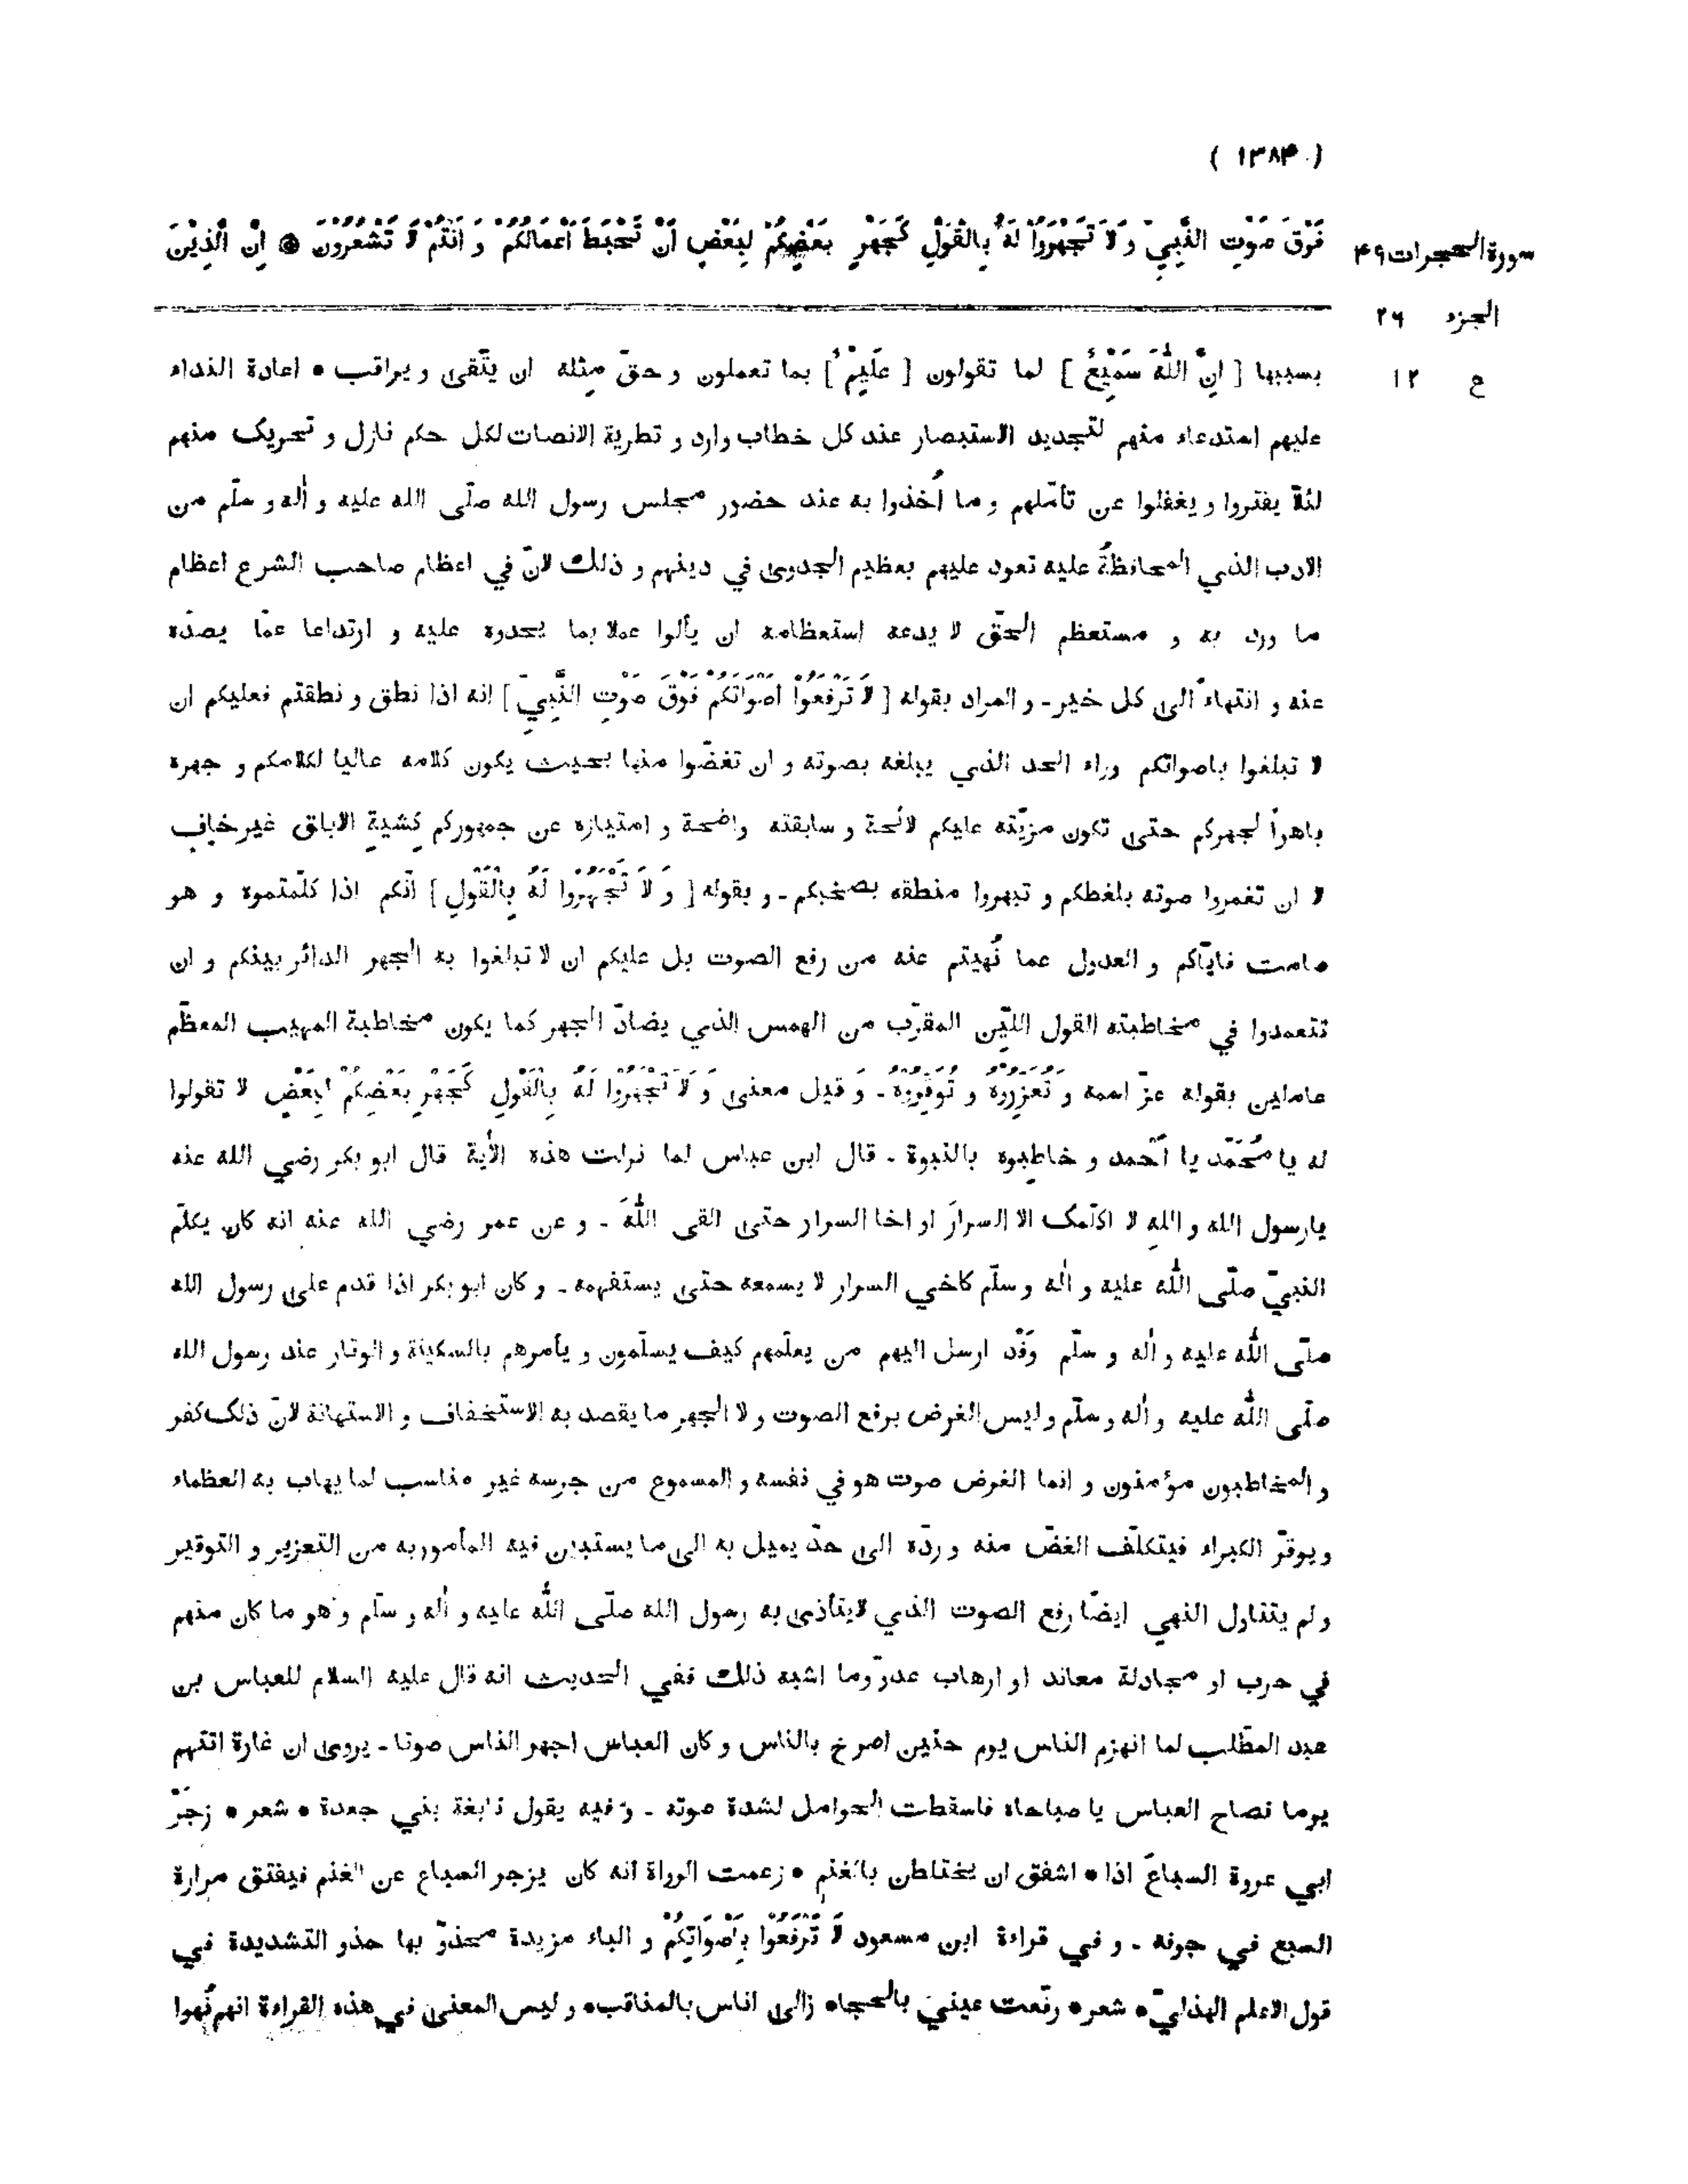 ( ١٣٨۴ )
سورة الحجرات ۴٩
الجزء ٢٦
ع ١٢
فَوْقَ صَوْتِ النَّبِيِّ وَلَا تَجْهَرُوْا لَهُ بِالْقَوْلِ كَجَهْرِ بَعْضِكُمْ لِبَعْضٍ اَنْ تَحْبَطَ اَعْمَالُكُمْ وَ اَنْتُمْ لَا تَشْعُرُوْنَ ۞ اِنَّ الَّذِيْنَ
بسببها [ اِنَّ اللّٰهَ سَمِيْعٌ ] لما تقولون [ عَلِيْمٌ ] بما تعملون و حقّ مثله ان يتّقى و يراقب • اعادة النداء
عليهم استدعاء منهم لتجديد الاستبصار عند كل خطاب وارد و تطرية الانصات لكل حكم نازل و تحريك منهم
لئلّا يفتروا و يغفلوا عن تأمّلهم و ما اُخذوا به عند حضور مجلس رسول الله صلّى الله عليه و أله و سلّم من
الادب الذي المحافظةُ عليه تعود عليهم بعظيم الجدوى في دينهم و ذلك لانّ في اعظام صاحب الشرع اعظام
ما ورد به و مستعظم الحقّ لا يدعه استعظامه ان يألوا عملا بما يحدوه عليه و ارتداعا عمّا يصدّه
عنه و انتهاءً الى كل خير ـ و المراد بقوله [ لَا تَرْفَعُوْا اَصْوَاتَكُمْ فَوْقَ صَوْتِ النَّبِيِّ ] انه اذا نطق و نطقتم فعليكم ان
لا تبلغوا باصواتكم وراء الحد الذي يبلغه بصوته و ان تغضّوا منها بحيث يكون كلامه عاليا لكلامكم و جهره
باهراً لجهركم حتى تكون مزيّته عليكم لائحة و سابقته واضحة و امتيازه عن جمهوركم كشيةِ الابلق غير خافٍ
لا ان تغمروا صوته بلغطكم و تبهروا منطقه بصخبكم ـ و بقوله [ وَ لَا تَجْهَرُوْا لَهُ بِالْقَوْلِ ] انّكم اذا كلّمتموه و هو
صامت فايّاكم و العدول عما نُهيتم عنه من رفع الصوت بل عليكم ان لا تبلغوا به الجهر الدائر بينكم و ان
تتعمدوا في مخاطبته القول الليّن المقرّب من الهمس الذي يضادّ الجهر كما يكون مخاطبة المهيب المعظّم
عاملين بقوله عزّ اسمه وَ تُعَزِّرُوْهُ وَ تُوَقِّرُوْهُ ـ وَ قيل معنى وَ لَا تَجْهَرُوْا لَهُ بِالْقَوْلِ كَجَهْرِ بَعْضِكُمْ لِبَعْضٍ لا تقولوا
له يا مُحَمَّد يا اَحْمد و خاطبوه بالنبوة ـ قال ابن عباس لما نزلت هذه الأية قال ابو بكر رضي الله عنه
يارسول الله و اللهِ لا اكلّمك الا السرارَ او اخا السرار حتى القى اللّٰهَ ـ و عن عمر رضي الله عنه انه كان يكلّم
النبيّ صلّى اللّٰه عليه و أله و سلّم كاخي السرار لا يسمعه حتى يستفهمه ـ و كان ابو بكر اذا قدم على رسول الله
صلّى اللّٰه عليه و أله و سلّم وَفْد ارسل اليهم من يعلّمهم كيف يسلّمون و يأمرهم بالسكينة و الوقار عند رسول الله
صلّى اللّٰه عليه و أله و سلّم و ليس الغرض برفع الصوت و لا الجهر ما يقصد به الاستخفاف و الاستهانة لانّ ذلك كفر
و المخاطبون مؤمنون و انما الغرض صوت هو في نفسه و المسموع من جرسه غير مناسب لما يهاب به العظماء
و يوقّر الكبراء فيتكلّف الغضّ منه و ردّه الى حدّ يميل به الى ما يستبين فيه المأمور به من التعزير و التوقير
و لم يتناول النهي ايضًا رفع الصوت الذي لايتأذى به رسول الله صلّى اللّٰه عليه و أله و سلّم و هو ما كان منهم
في حرب او مجادلة معاند او ارهاب عدوّ وما اشبه ذلك ففي الحديث انه قال عليه السلام للعباس بن
عبد المطّلب لما انهزم الناس يوم حنين اصرخ بالناس و كان العباس اجهر الناس صوتا ـ يروى ان غارة اتتهم
يوما فصاح العباس يا صباحاه فاسقطت الحوامل لشدة صوته ـ و فيه يقول نابغة بني جعدة • شعر • زَجَرْ
ابي عروة السباعَ اذا • اشفق ان يختلطن بالغنم • زعمت الرواة انه كان يزجر السباع عن الغنم فيفتق مرارة
السبع في جوفه ـ و في قراءة ابن مسعود لَا تَرْفَعُوْا بِاَصْوَاتِكُمْ و الباء مزيدة محذوّ بها حذو التشديدة في
قول الاعلم الهذليّ • شعر • رفّعت عينيَ بالحجاه زالى اناس بالمناقب • و ليس المعنى في هذه القراءة انهم نُهوا